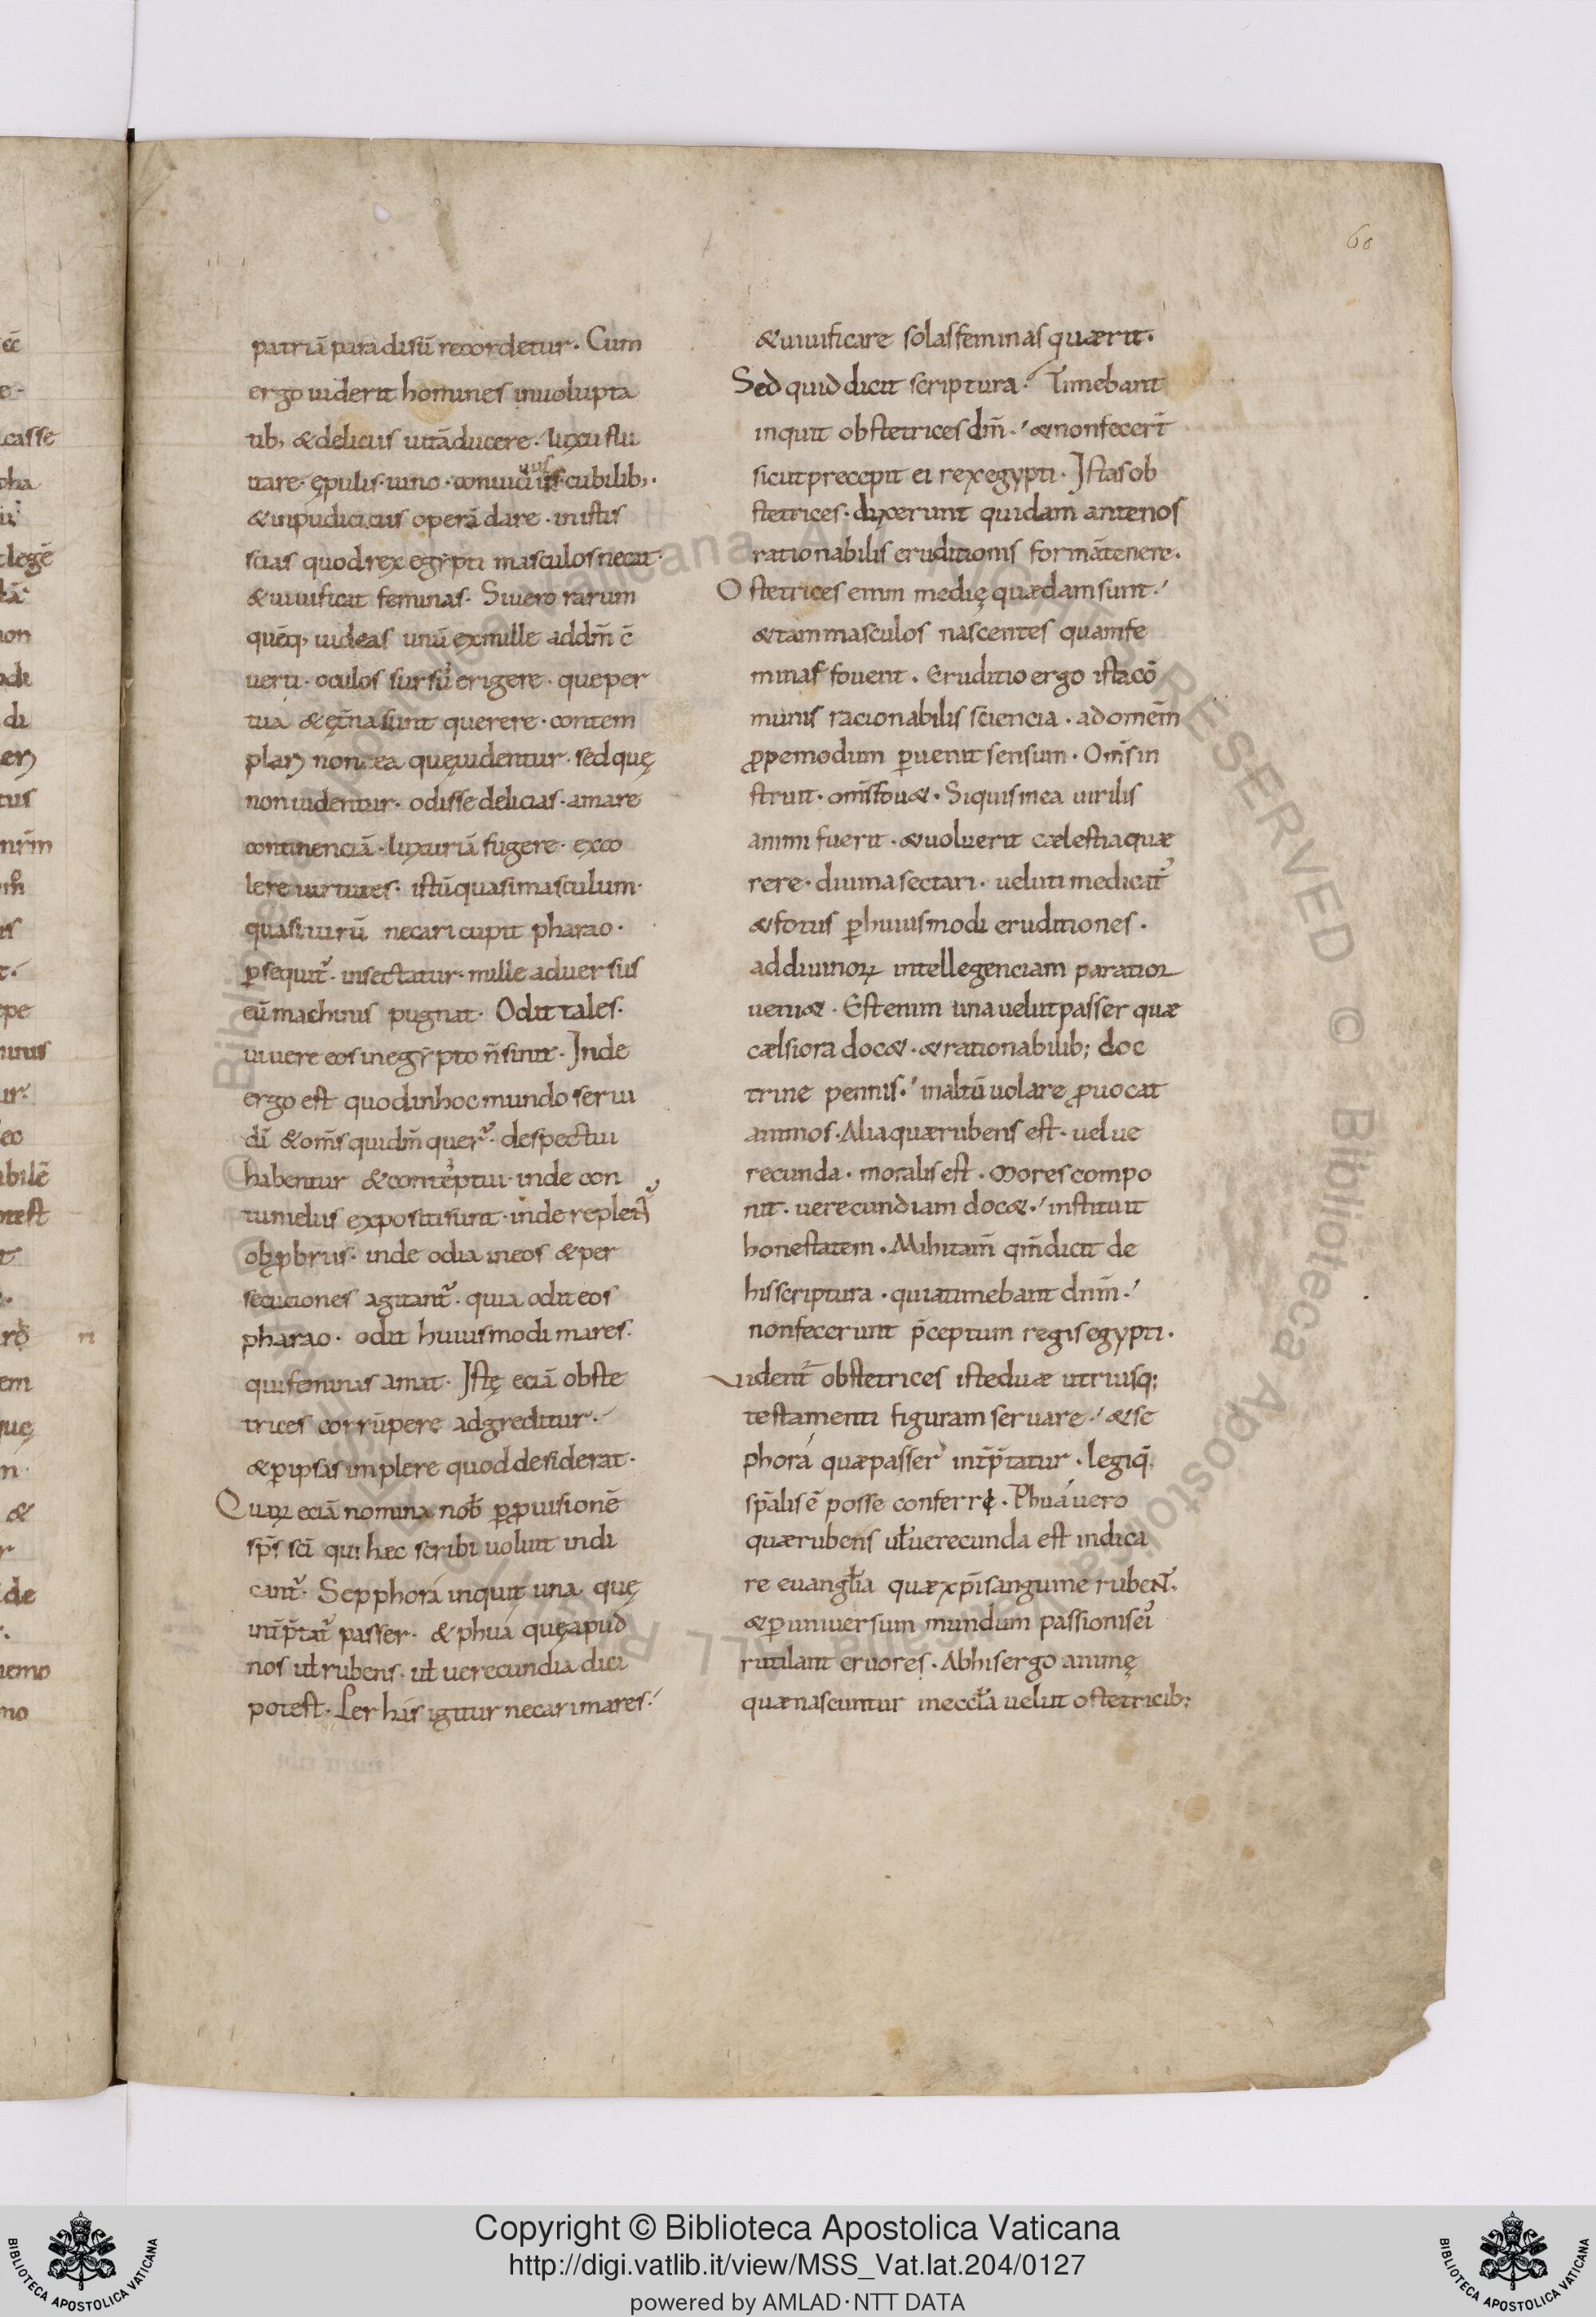 60
patriā paradisū recordetur. Cum
ergo uiderit homines inuolupta
tib; & deliciis uitā ducere. luxu flu
itare. ępulis. uino. conuiuiis. cubilib;.
& inpudiciciis operā dare. in istis
scias quod rex egypti masculos necat.
& uiuificat feminas. Si uero rarum
quēq; uideas unū ex mille ad dm̄ c̄
uerti. oculos sursū erigere. que per
tua & ęt̄na sunt querere. contem
plari non ea quę uidentur. sed quę
non uidentur. odisse delicias. amare
continenciā. luxuriā fugere. exco
lere uirtutes. istū quasi masculum.
quasi uirū necari cupit pharao.
ꝑsequit᷑. insectatur. mille aduersus
eū machinis pugnat. Odit tales.
uiuere eos in egypto n̄ sinit. Inde
ergo est quod in hoc mundo serui
dī & om̄s qui dm̄ quer᷑. despectui
habentur & contēptui. inde con
tumeliis expositi sunt. inde replent᷑
obꝓbriis. inde odia in eos & per
secuciones agitant᷑. quia odit eos
pharao. odit huiusmodi mares.
qui feminas amat. Istę eciā obste
trices corrūpere adgreditur.
& ꝑ ipsas implere quod desiderat.
Quaꝝ eciā nomina nob̄ ꝑ ꝓuisionē
sp̄s sc̄i qui hæc scribi uoluit indi
cant᷑. Sepphora inquit una quę
int̄p̄tat᷑ passer. & phua quę apud
nos ut̄ rubens. ut̄ uerecundia dici
potest. Per has igitur necari mares.
& uiuificare solas feminas quærit.
Sed quid dicit scriptura. Timebant
inquit obstetrices dm̄. & non fecer̄t
sicut precepit ei rex egypti. Istas ob
stetrices. dixerunt quidam ante nos
rationabilis eruditionis formā tenere.
Ostetrices enim medię quædam sunt.
& tam masculos nascentes quam fe
minas fouent. Eruditio ergo ista cō
munis racionabilis sciencia. ad omem̄
ꝓpemodum ꝑuenit sensum. Om̄s in
struit. om̄s fou&. Si quis in ea uirilis
animi fuerit. & uoluerit cælestia quæ
rere. diuina sectari. ueluti medicat᷑
& fotus ꝑ huiusmodi eruditiones.
ad diuinoꝝ intellegenciam paratior
ueni&. Est enim una uelut passer quæ
cælsiora doc&. & rationabilib; doc
trine pennis. in altū uolare ꝓuocat
animos. Alia quæ rubens est. uel ue
recunda. moralis est. Mores compo
nit. uerecundiam doc&. instituit
honestatem. Mihi tam̄ qm̄ dicit de
his scriptura. quia timebant dnm̄.
non fecerunt p̄ceptum regis egypti.
Uident᷑ obstetrices iste duæ utriusq;
testamenti figuram seruare. & se
phora quæ passer int̄p̄tatur. legi q̄
sp̄alis ē posse conferre. Phua uero
quæ rubens ut̄ uerecunda est indica
re euangl̄ia quæ xp̄i sanguine rubent᷑.
& ꝑ uniuersum mundum passionis ei᷒
rutilant cruores. Ab his ergo animę
quæ nascuntur in eccl̄a uelut ostetricib;
Copyright © Biblioteca Apostolica Vaticana
http://digi.vatlib.it/view/MSS_Vat.lat.204/0127
powered by AMLAD·NTT DATA